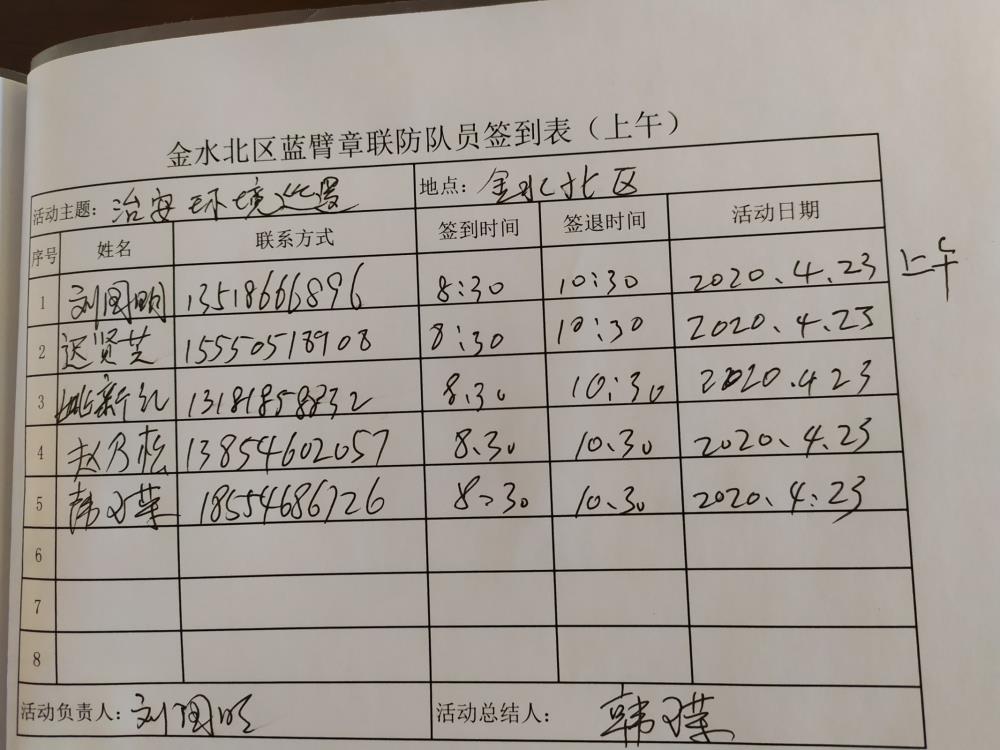 金水北区蓝臂章联防队员签到表（上午）
活动主题：治安环境巡逻 地点：金水北区
序号 姓名 联系方式 签到时间 签退时间 活动日期
上午
1 刘国明 13518666896 8:30 10:30 2020.4.23
2 迟贤芝 15550518908 8:30 10:30 2020.4.23
3 姚新礼 13181858832 8.30 10:30 2020.4 23
4 赵乃松 13854602057 8.30 10.30 2020.4.23
5 韩 18554686726 8:30 10.30 2020.4.23
6
7
8
活动负责人：刘国明 活动总结人：韩